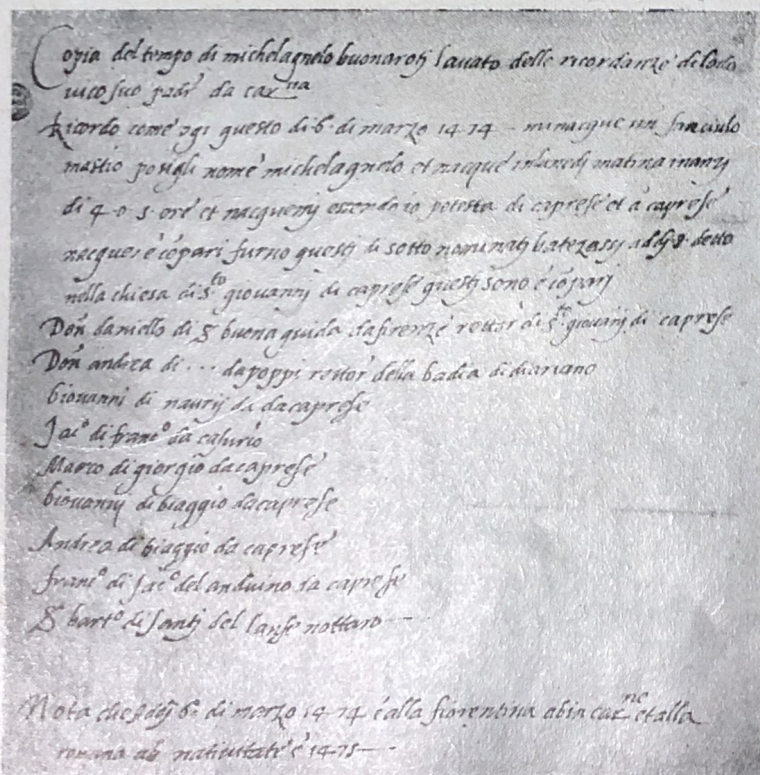 Copia del tempo di michelagnelo buonarotj lauato delle ricordanze di lodo
uico suo padre da car.na
Ricordo come ogi questo di 6 di marzo 1474 mi nacque un fanciulo
mastio posigli nome michelagnelo et nacque in lunedj matina inanzj
di 4 o 5 ore et nacquemj essendo io potesta di caprese et a caprese
nacque e cōpari furno questj di sotto nominatj batezassj addj 8 detto
nella chiesa di s.to giouannj di caprese questj sono e cōparj
Don daniello di s buonaguida da firenze rettor di s.to giouanj di caprese
Don andrea di ... da poppi rettor della badia di diariano
Giouannj di da caprese
Jac.o di franc.o da
Marco di giorgio da caprese
Giouannj di biaggio da caprese
Andrea di biaggio da caprese
franc.o di Jac.o del anduino da caprese
S bart.o di santj del lanse nottaro —
Nota che addj 6 di marzo 1474 è alla fiorentina ab incar.ne et alla
romana ab natiuitate è 1475 —